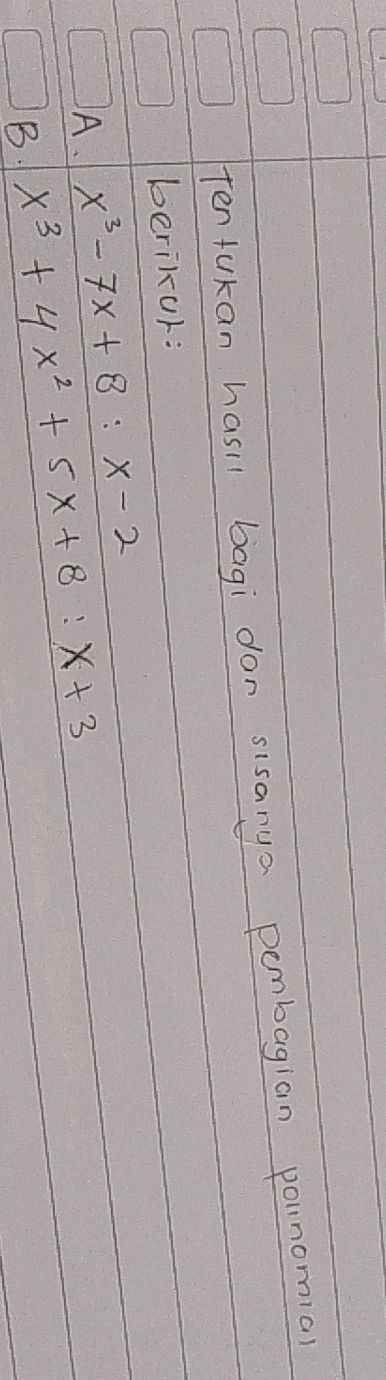 Tentukan hasil bagi dan sisanya pembagian polinomial
berikut:
A. x³ - 7x + 8 : x - 2
B. x³ + 4x² + 5x + 8 : x + 3